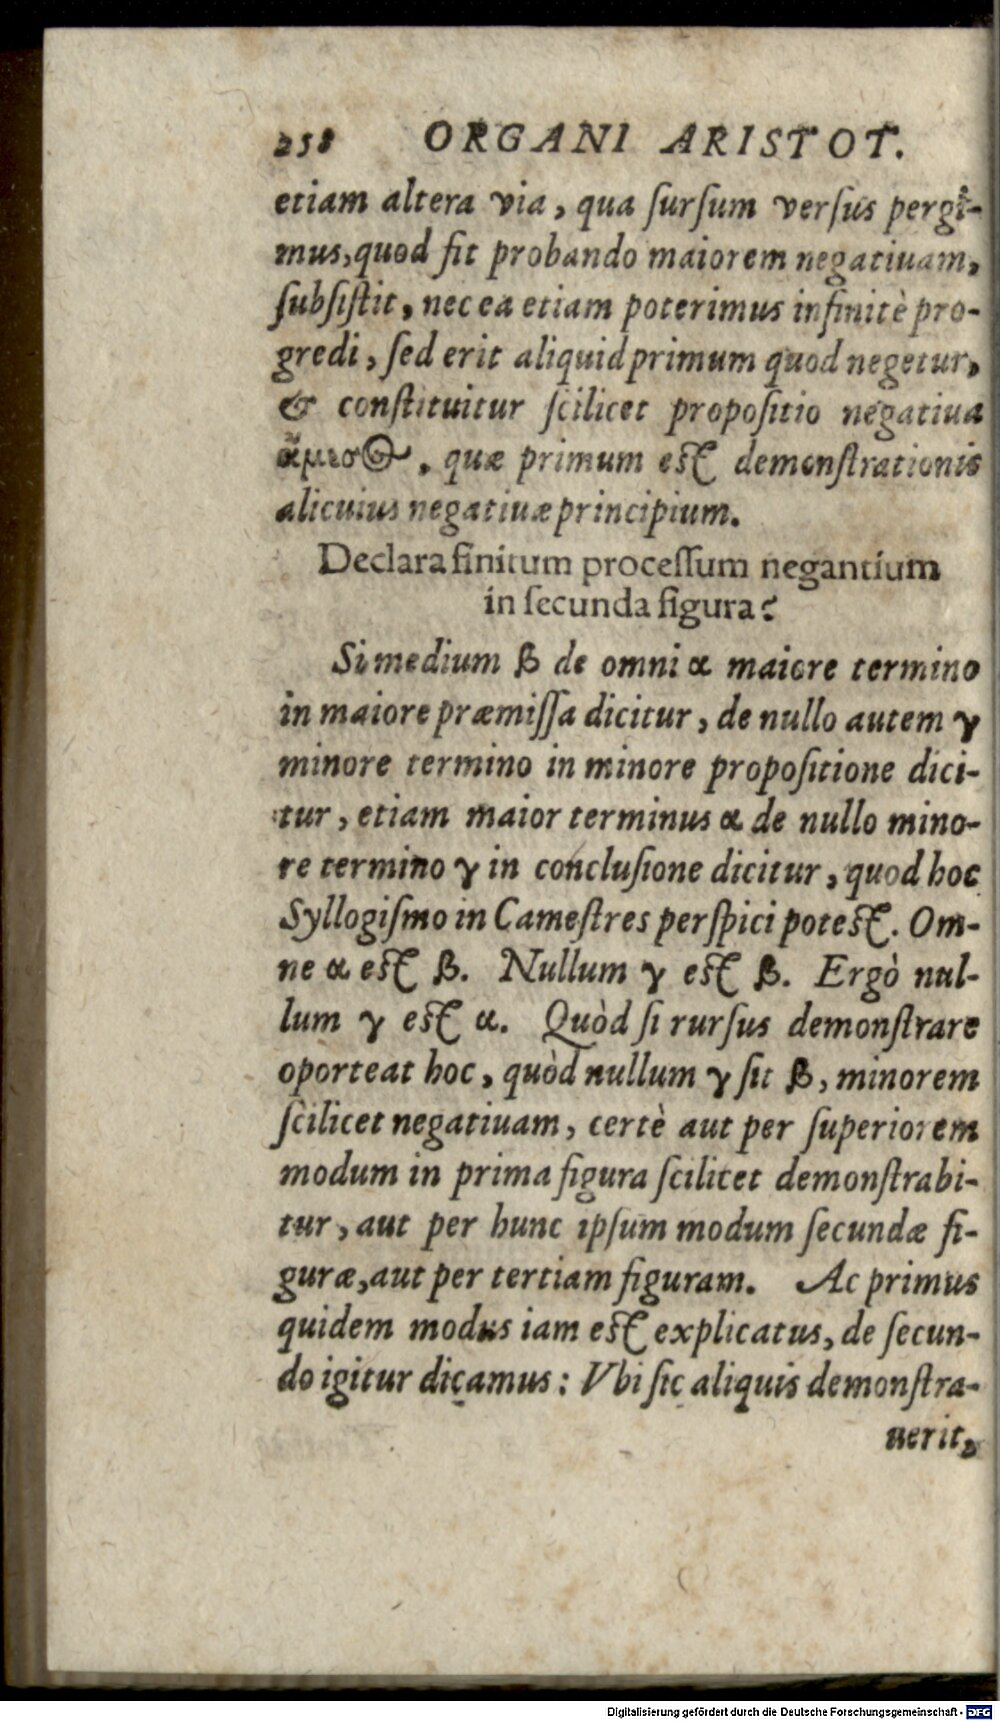 258 ORGANI ARISTOT.
etiam altera via, qua ſurſum verſus pergi-
mus, quod fit probando maiorem negatiuam,
ſubſiſtit, nec ea etiam poterimus infinitè pro-
gredi, ſed erit aliquid primum quod negetur,
& conſtituitur ſcilicet propoſitio negatiua
ἄμεσος, quæ primum eſt demonſtrationis
alicuius negatiuæ principium.
Declara finitum proceſſum negantium
in ſecunda figura?
Si medium β de omni α maiore termino
in maiore præmiſſa dicitur, de nullo autem γ
minore termino in minore propoſitione dici-
tur, etiam maior terminus α de nullo mino-
re termino γ in concluſione dicitur, quod hoc
Syllogiſmo in Cameſtres perſpici poteſt. Om-
ne α eſt β. Nullum γ eſt β. Ergò nul-
lum γ eſt α. Quòd ſi rurſus demonſtrare
oporteat hoc, quòd nullum γ ſit β, minorem
ſcilicet negatiuam, certè aut per ſuperiorem
modum in prima figura ſcilicet demonſtrabi-
tur, aut per hunc ipſum modum ſecundæ fi-
guræ, aut per tertiam figuram. Ac primus
quidem modus iam eſt explicatus, de ſecun-
do igitur dicamus: Vbi ſic aliquis demonſtra-
uerit,
Digitalisierung gefördert durch die Deutsche Forschungsgemeinschaft - DFG